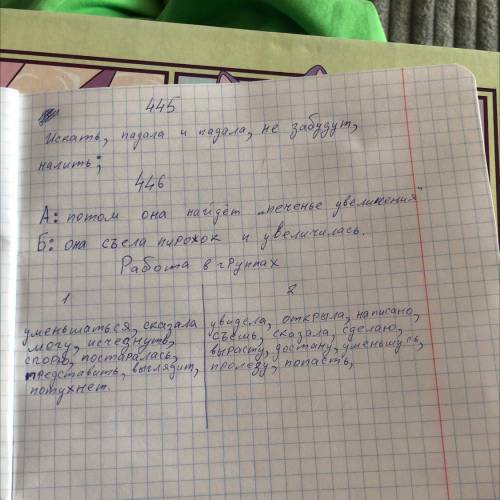 445
Искать, падала и падала, не забудут,
налить;
446
А: потом она найдёт „печенье увеличения"
Б: она съела пирожок и увеличилась.
Работа в группах
1
2
уменьшаться, сказала
могу, исчезнуть,
сгорю, постаралась,
представить, выглядит,
потухнет.
увидела, открыла, написано,
съешь, сказала, сделаю,
вырасту, достану, уменьшусь,
пролезу, попасть,